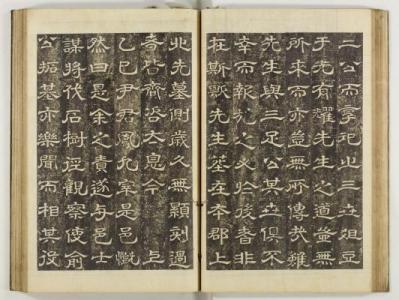 二公而享祀之三世俎豆
于先有耀先生之道豈無
所來而亦豈無所傳哉雖
先生與三公世俱不
幸而報礼之必於後者非
在斯歟先生墓在本郡上
北先墓側歲久無顯刻過
者咨太息今
乙巳尹君鳳九宰是邑慨
然曰是余之責遂与邑士
謀將伐石樹徑觀察使俞
公拓基亦樂聞而相其役